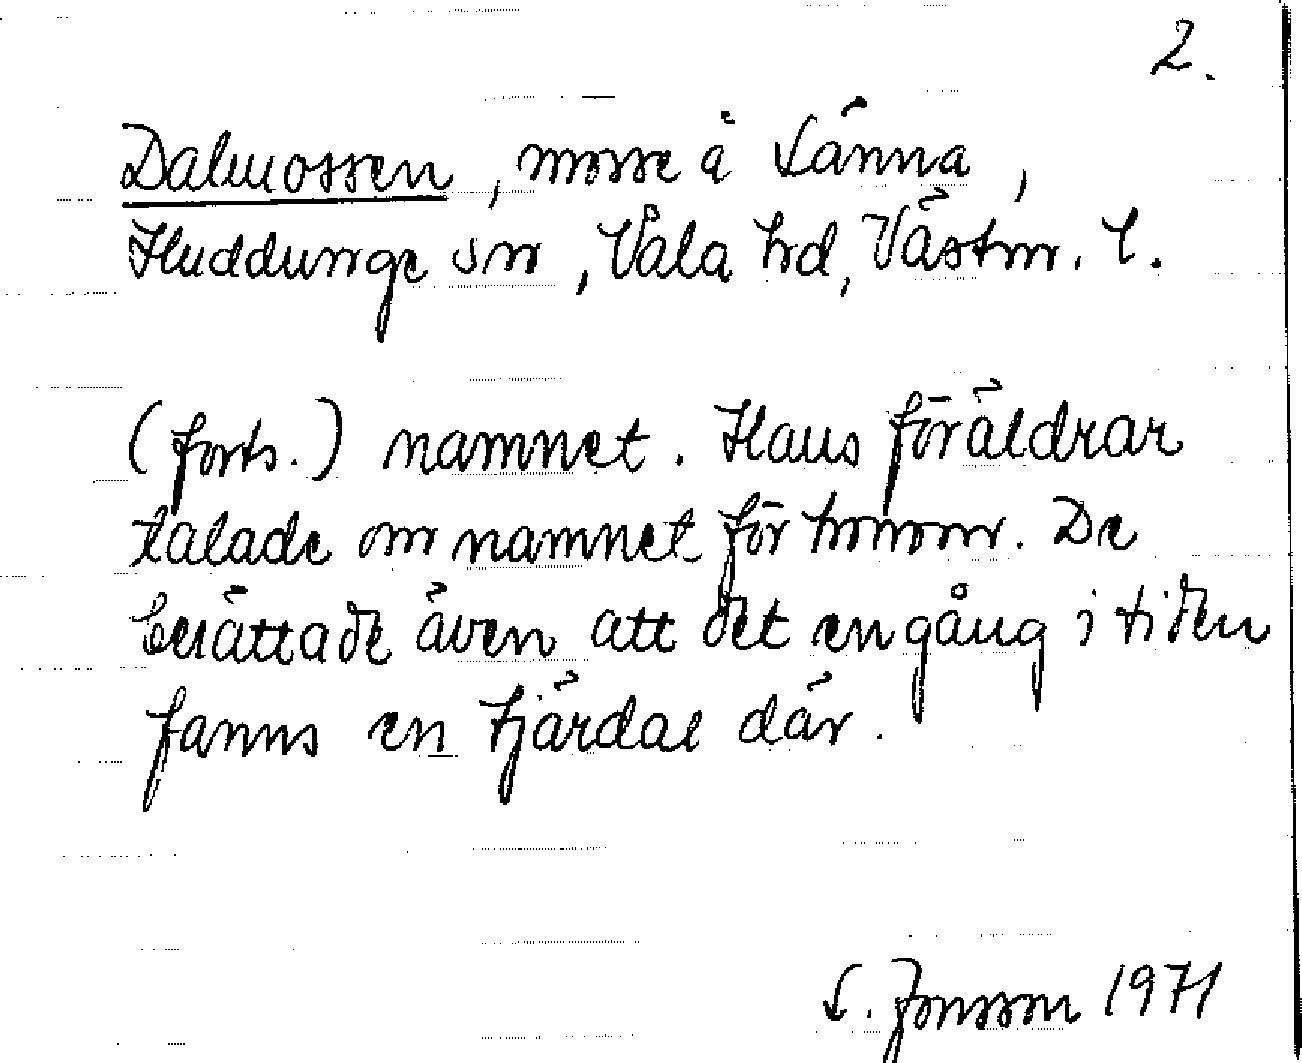 2.
Dalmossen, mosse å Länna,
Huddunge sn, Våla hd, Västm. l.
(forts.) namnet. Hans föräldrar
talade om namnet för honom. De
berättade även att det en gång i tiden
fanns en tjärdal där.
L. Jonsson 1971